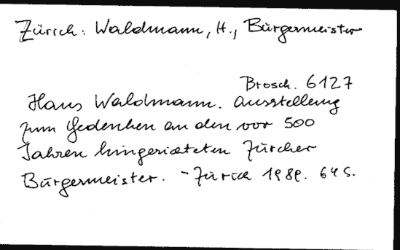 Zürich: Waldmann, H., Bürgermeister
Brosch. 6127
Hans Waldmann. Ausstellung
zum Gedenken an den vor 500
Jahren hingerichteten Zürcher
Bürgermeister. - Zürich 1989. 64 S.